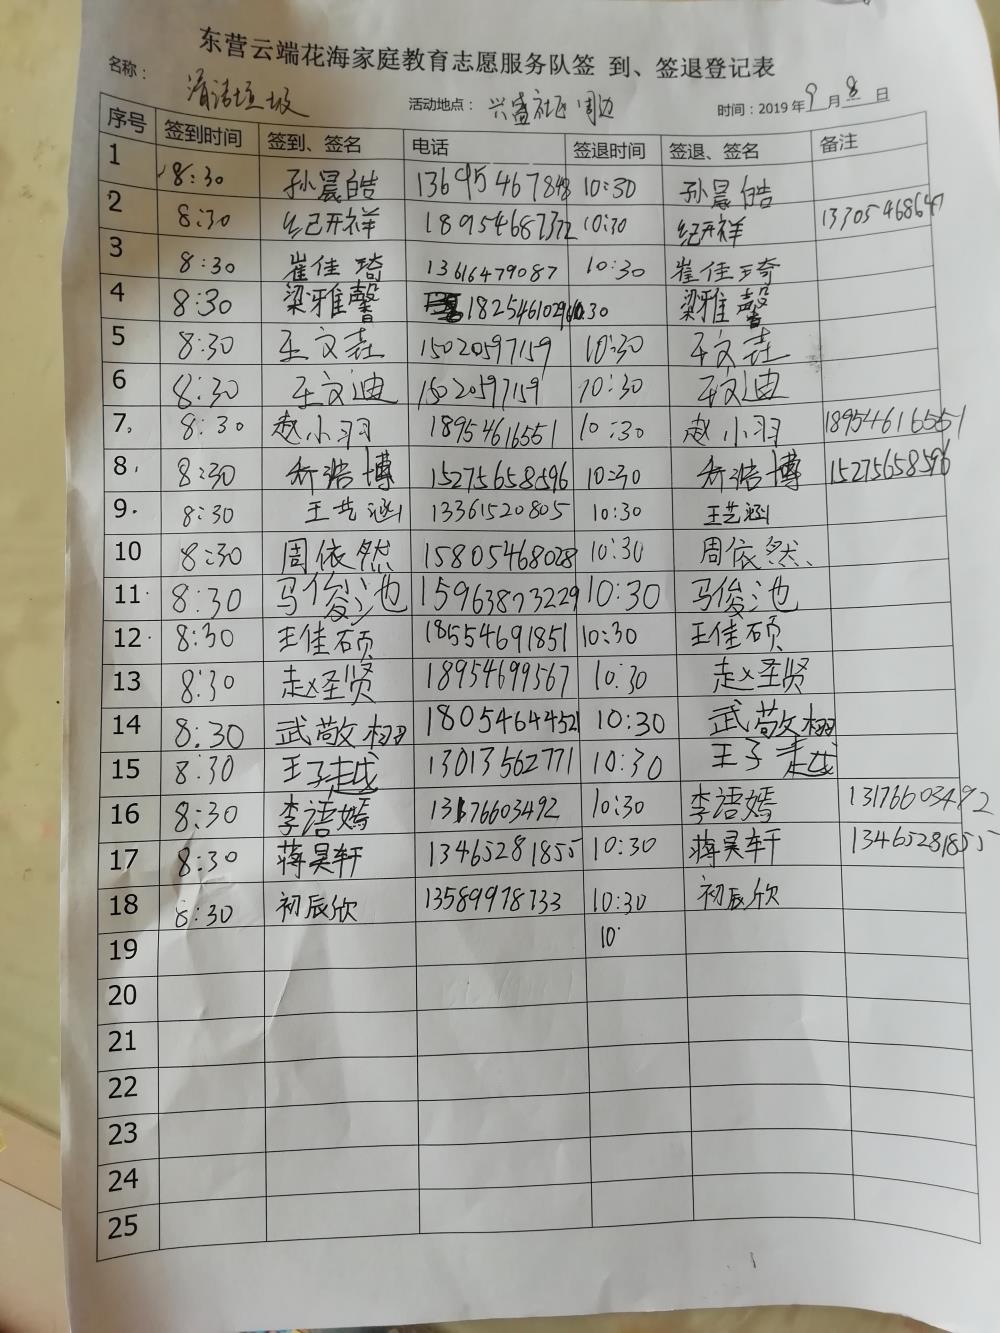 东营云端花海家庭教育志愿服务队签 到、签退登记表
名称： 清洁垃圾 活动地点： 兴盛社区周边 时间：2019年9月8日
序号 签到时间 签到、签名 电话 签退时间 签退、签名 备注
1 8:30 孙晨皓 13695467848 10:30 孙晨皓
2 8:30 纪开祥 18954687372 10:30 纪开祥 13305468647
3 8:30 崔佳琦 13616479087 10:30 崔佳琦
4 8:30 梁雅馨 10:30 梁雅馨
5 8:30 15020597159 10:30
6 8:30 王文迪 15020597159 10:30 王文迪
7. 8:30 赵小羽 18954616551 10:30 赵小羽 18954616551
8. 8:30 乔浩博 15275658596 10:30 乔浩博 15275658596
9. 8:30 王艺涵 13361520805 10:30 王艺涵
10 8:30 周依然 15805468028 10:30 周依然
11. 8:30 马俊池 15963873229 10:30 马俊池
12. 8:30 王佳硕 18554691851 10:30 王佳硕
13 8:30 赵圣贤 18954699567 10:30 赵圣贤
14 8:30 武敬栩 18054644521 10:30 武敬栩
15 8:30 王子越 13013562771 10:30 王子越
16 8:30 李语嫣 13176603492 10:30 李语嫣 13176603492
17 8:30 蒋昊轩 13465281855 10:30 蒋昊轩 13465281855
18 8:30 初辰欣 13589978733 10:30 初辰欣
19 10:
20
21
22
23
24
25